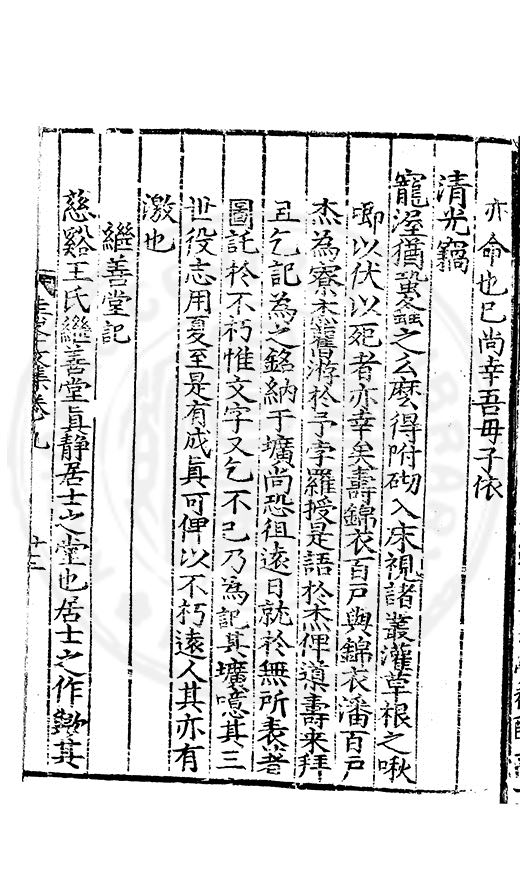 亦命也已尚幸吾毋子依
清光竊
寵渥猶蛩螽之么麽得附砌入床視諸叢灌草根之啾
唧以伏以死者亦幸矣壽錦衣百戶與錦衣潘百戶
杰為寮杰舊游於予孛羅授是語於杰俾導壽来拜
且乞記為之銘納于壙尚恐徂遠日就於無所表著
圖託於不朽惟文字又乞不已乃為記其壙噫其三
世役志用夏至是有成真可俾以不朽遠人其亦有
激也
繼善堂記
慈谿王氏繼善堂真静居士之堂也居士之作
文集卷九
十三